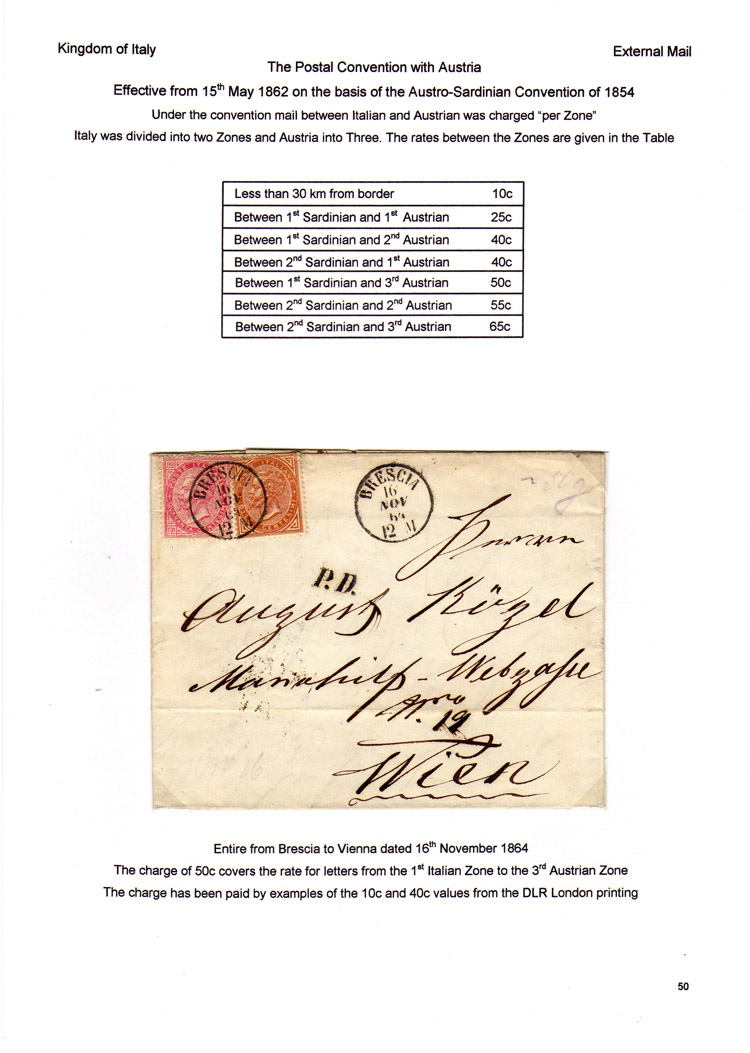 Kingdom of Italy
External Mail
The Postal Convention with Austria
Effective from 15th May 1862 on the basis of the Austro-Sardinian Convention of 1854
Under the convention mail between Italian and Austrian was charged “per Zone”
Italy was divided into two Zones and Austria into Three. The rates between the Zones are given in the Table
Less than 30 km from border 10c
Between 1st Sardinian and 1st Austrian 25c
Between 1st Sardinian and 2nd Austrian 40c
Between 2nd Sardinian and 1st Austrian 40c
Between 1st Sardinian and 3rd Austrian 50c
Between 2nd Sardinian and 2nd Austrian 55c
Between 2nd Sardinian and 3rd Austrian 65c
BRESCIA
16
NOV
12 M
BRESCIA
16
NOV
64
12 M
Herrn
P.D.
August Kögel
Mariahilf - Webgasse
Nro 19
Wien
Entire from Brescia to Vienna dated 16th November 1864
The charge of 50c covers the rate for letters from the 1st Italian Zone to the 3rd Austrian Zone
The charge has been paid by examples of the 10c and 40c values from the DLR London printing
50